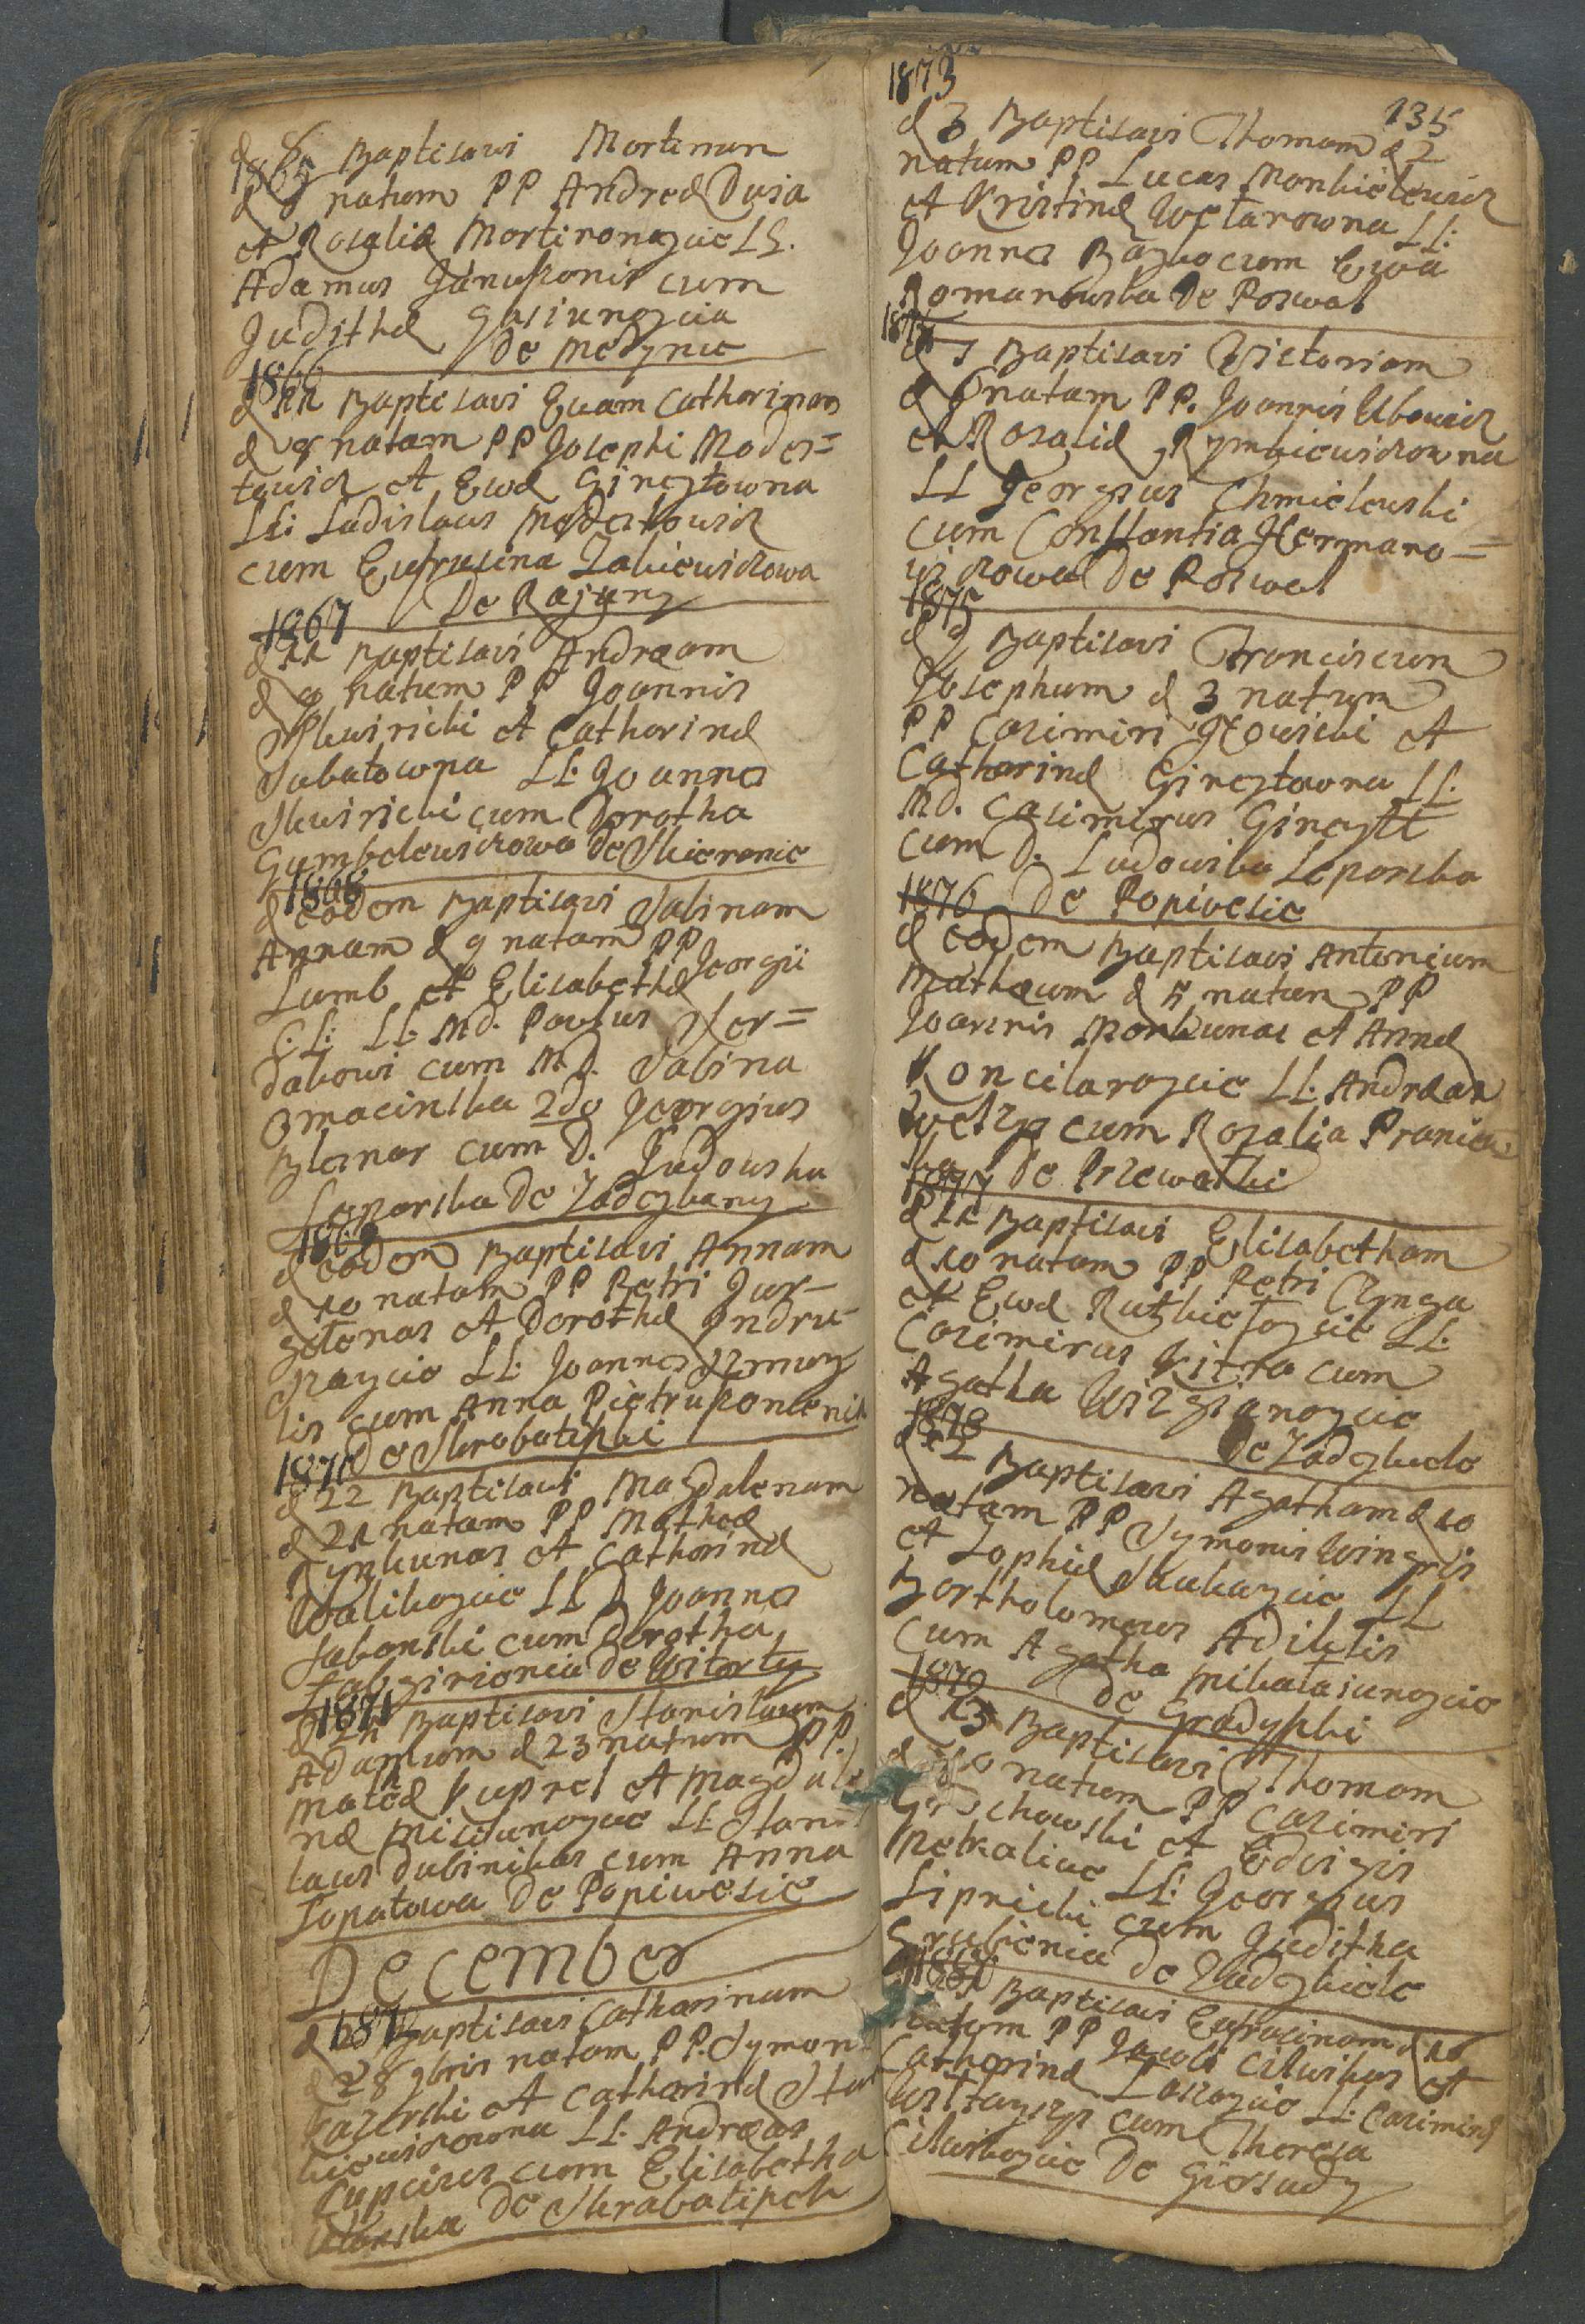 1865
d 8 Baptisavi Martinum
d 8 natum PP Andreæ Dusa
et Rosaliæ Martinonaycie LL.
Adamus Januszonis cum
Juditha
de Medynie
1866
d 11 Baptisavi Evam Catharinam
d 9 natam PP Josephi Moder=
towicz et Ewæ Gineytowna
LL: Ladislaus Modertowicz
cum Eufrusina Zabiewiczowa
De Rajuny
1867
d 11 Baptisavi Andræam
d 9 natum PP Joannis
Skwiricki et Catharinæ
Sabatowna LL: Joannes
Skwiricki cum Dorotha
Gumbelewiczowa de Skieronie
1868
d eodem Baptisavi Sabinam
Annam d 9 natam PP
Lumb et Elisabethæ Georgii
C.L: LL: Md. Paulus Nar=
dabowi cum M.D. Sabina
Omacinska 2do Georgius
Blesnar cum D. Ludowska
Leparska de Zadeykany
1869
d eodem Baptisavi Annam
d 10 natam PP Petri Jur-
gelonas et Dorotheæ Andru-
szaycie LL: Joannes
lis cum Anna Pietruszonienie
1870 de Skrabatiszki
d 22 Baptisavi Magdalenam
d 21 natam PP Matheæ
Pynkunas et Catharinæ
Walikaycie LL D Joannes
Sabonski cum Dorotha
de Witorty
1871
d 24 Baptisavi Stanislaum
Adamum d 23 natum PP.
Matheæ Kuprel et Magdale
næ Misiunaycie LL: Stanis
laus Dubinikas cum Anna
Lopatowa De Popiwesie
December
1872
d Baptisavi Catharinam
d 28 9bris natam PP. Symon
Kazerski et Catharinæ Stan
kiewiczowna LL. Andræas
Cupcisus cum Elisabetha
De Skrabatiszek
1873
135
d 3 Baptisavi Thomam d 2
natum PP Lucas Monkielewicz
et Kristinæ Wetarowna LL:
Joannes Bazho cum Ewa
Romanowska De Poswol
1874
d 7 Baptisavi Victoriam
d 6 natam PP. Joannis Ubowicz
et Rosaliæ Rymkiewiczowna
LL Georgius Chmielewski
cum Constantia Hermano=
wiczowa De Poswol
1875
d 9 Baptisavi Franciscum
Josephum d 3 natum
PP Casimiri Howicki et
Catharinæ Gineytowna LL.
Md. Casimirus Gineytt
cum D. Ludowika Leparska
1876 De Popiwesie
d eodem Baptisavi Antonium
Mathæum d 5 natum PP
Joannis Morkunas et Annæ
Koncilaraycie LL: Andræas
cum Rozalia
1877 De Przewalki
d 11 Baptisavi Elisabetham
d 10 natam PP Petri Czynga
et Ewæ LL:
Casimirus Kitra cum
Agatha Wizgianaycie
1878 de Zadeykiele
d 12 Baptisavi Agatham d 10
natam PP Symonis Wingris
et Sophiæ Skukaycie LL
Bartholomeus Adiklis
cum Agatha Mikalaiunaycie
1879 de Gradyszki
d 13 Baptisavi Thomam
d 10 natum PP Casimiri
et Edvigis
LL: Georgius
Lipnicki cum Juditha
de Zadeykiele
1880
Baptisavi Eufrosinam d 10
natam PP Jacobi Cilwikas et
Catharinæ Laszaycie LL: Casimirus
cum Theresa
Cilwikaycie De Giersudy